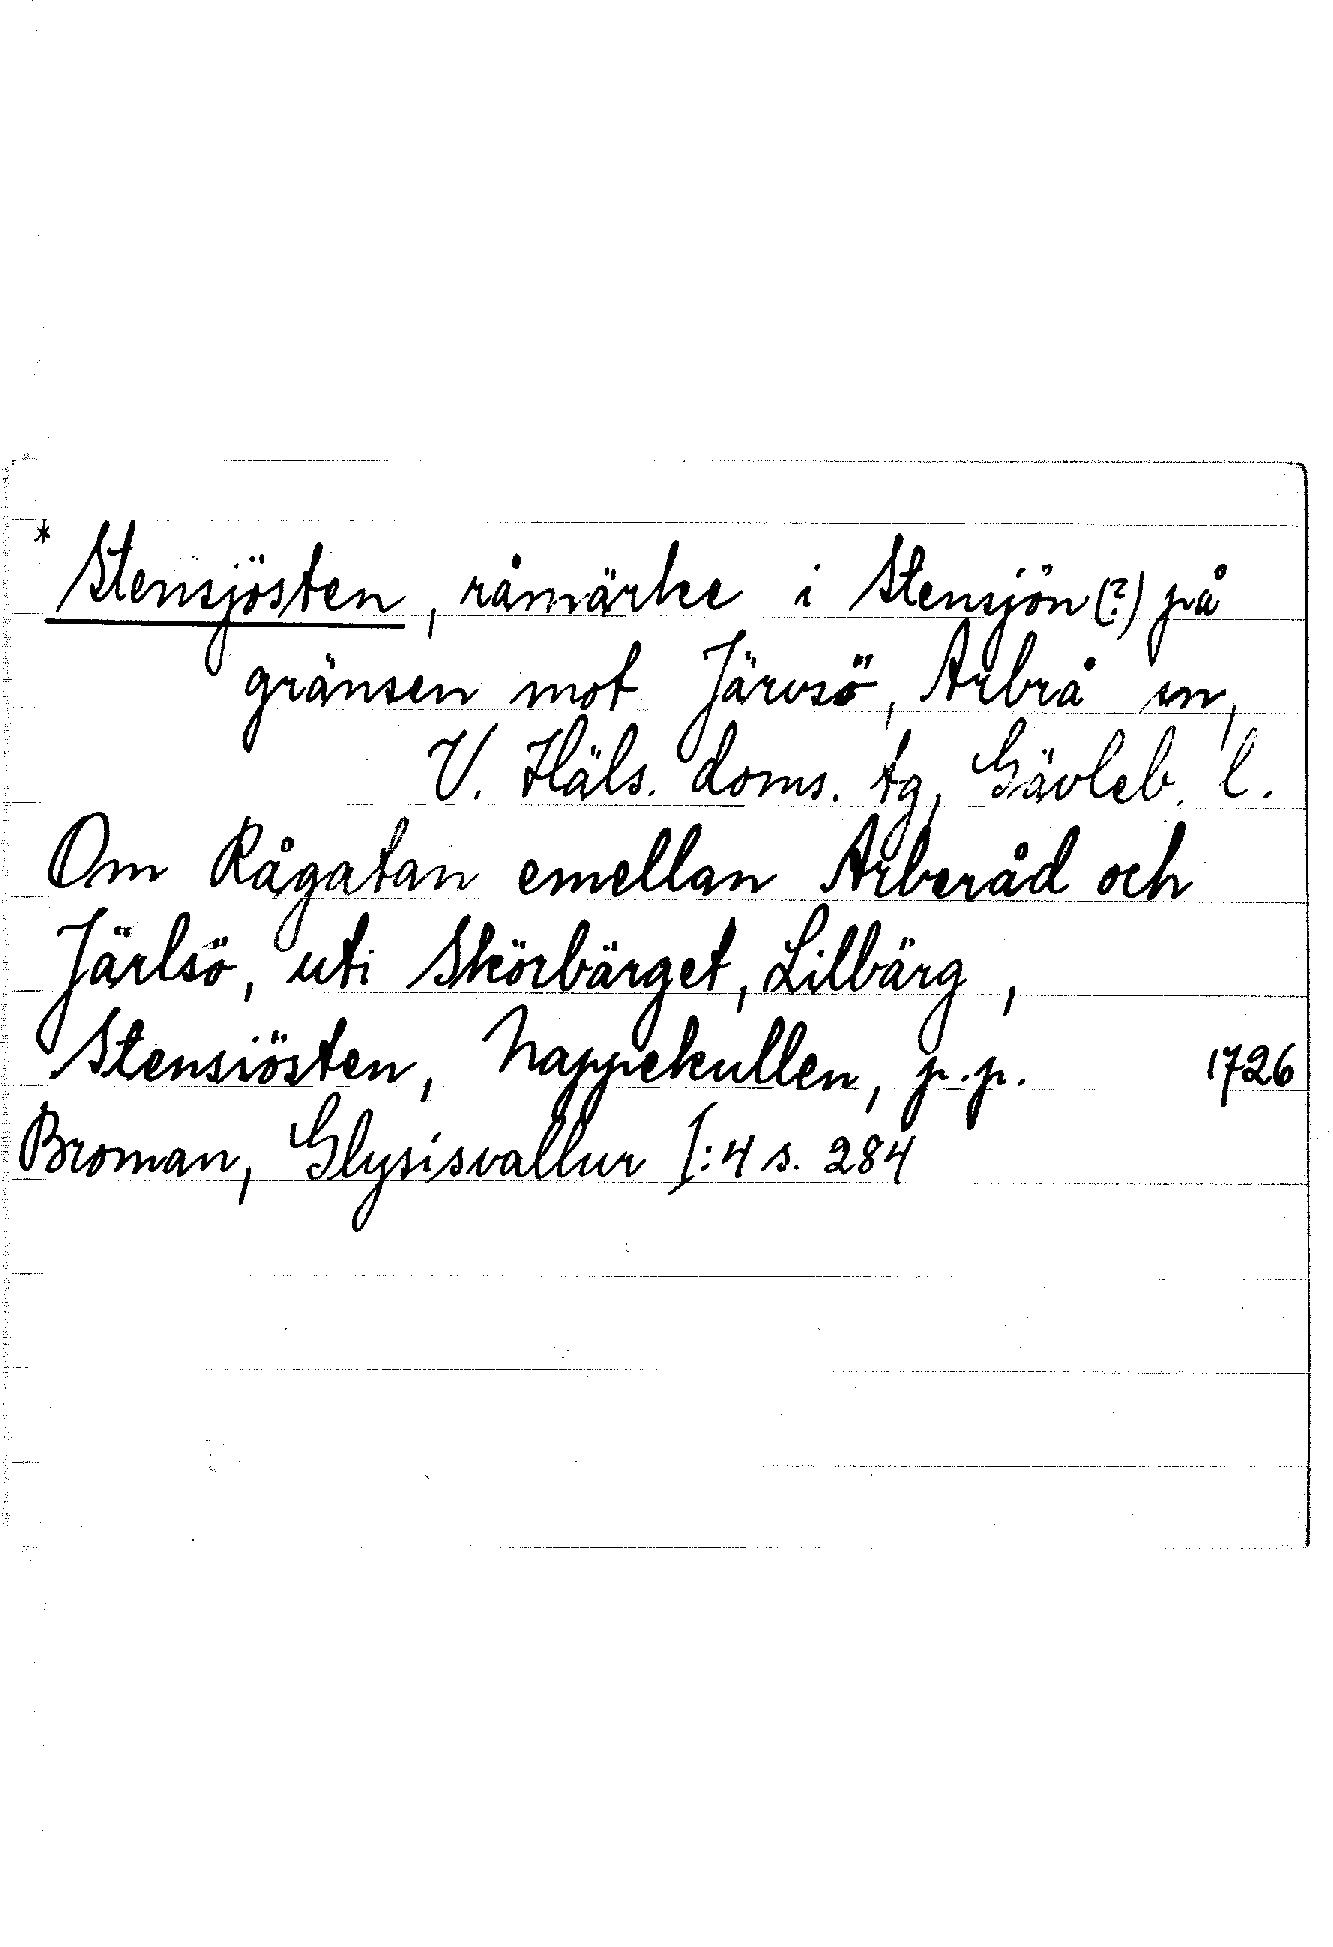 * Stensjösten, råmärke i Stensjön (?) på
gränsen mot Järvsö, Arbrå sn,
V. Häls. doms. tg, Gävleb. l.
Om Rågatan emellan Arberåd och
Järlsö, uti Skörbärget, Lilbärg,
Stensiösten, Nappekullen, p.p. 1726
Broman, Glysisvallur I:4 s. 284